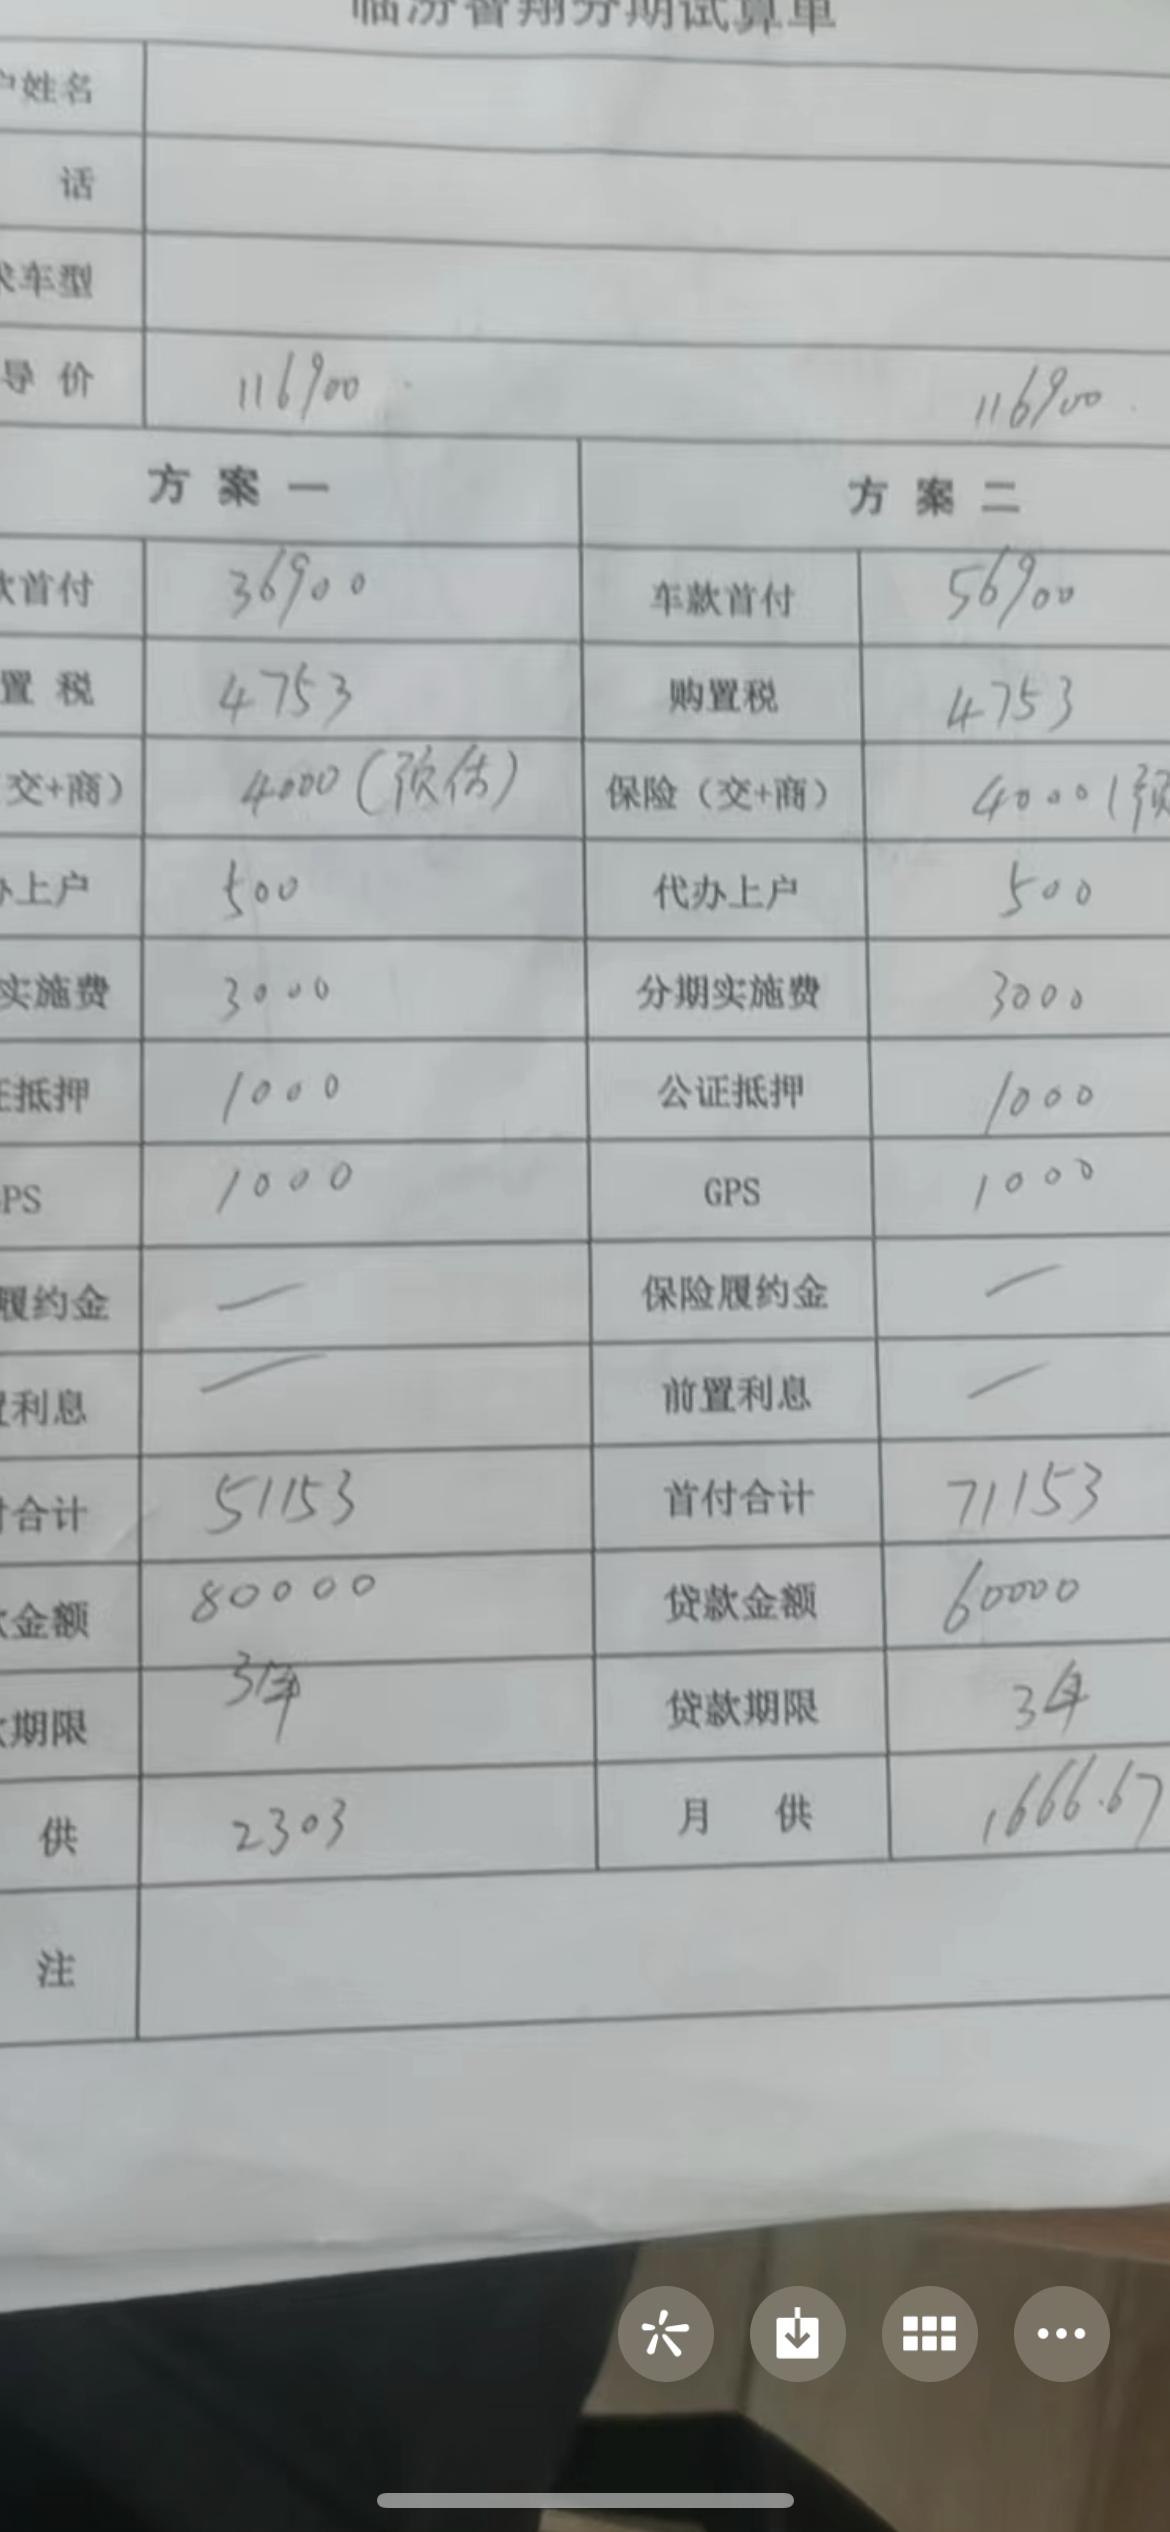 临汾智翔分期试算单
户姓名
话
求车型
导 价 116900 116900
方 案 一 方 案 二
款首付 36900 车款首付 56900
置 税 4753 购置税 4753
(交+商) 4000 (预估) 保险 (交+商) 4000 (预
办上户 500 代办上户 500
实施费 3000 分期实施费 3000
证抵押 1000 公证抵押 1000
PS 1000 GPS 1000
履约金 — 保险履约金 —
置利息 — 前置利息 —
付合计 51153 首付合计 71153
款金额 80000 贷款金额 60000
款期限 3年 贷款期限 3年
供 2303 月 供 1666.67
注